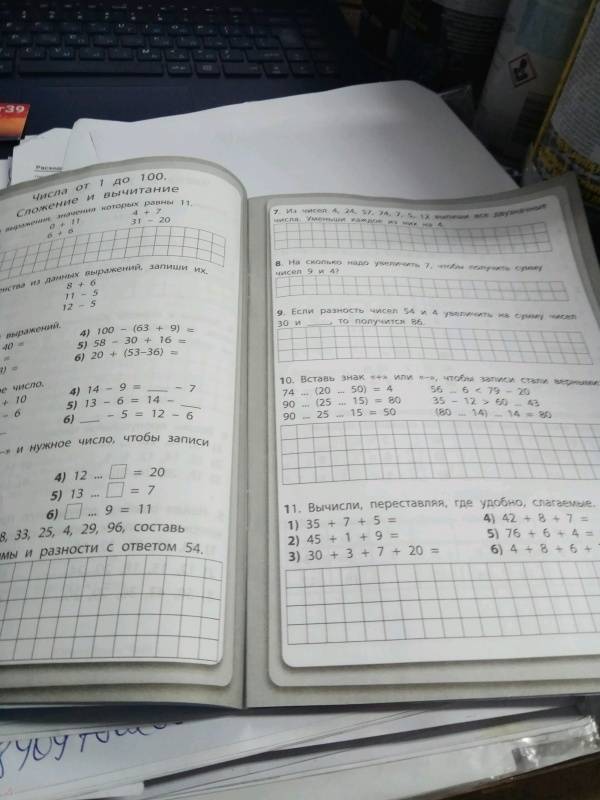 Числа от 1 до 100.
Сложение и вычитание
выражения, значения которых равны 11.
0 + 11
4 + 7
6 + 6
31 – 20
из данных выражений, запиши их.
8 + 6
11 – 5
12 – 5
выражений.
40 =
4) 100 – (63 + 9) =
=
5) 58 – 30 + 16 =
) =
6) 20 + (53–36) =
число.
+ 10
4) 14 – 9 = ___ – 7
– 6
5) 13 – 6 = 14 – ___
6) ___ – 5 = 12 – 6
и нужное число, чтобы записи
4) 12 ... □ = 20
5) 13 ... □ = 7
6) □ ... 9 = 11
8, 33, 25, 4, 29, 96, составь
и разности с ответом 54.
7. Из чисел 4, 24, 57, 74, 7, 5, 12 выпиши все двузначные
числа. Уменьши каждое из них на 4.
8. На сколько надо увеличить 7, чтобы получить сумму
чисел 9 и 4?
9. Если разность чисел 54 и 4 увеличить на сумму чисел
30 и ____, то получится 86.
10. Вставь знак «+» или «–», чтобы записи стали верными.
74 ... (20 ... 50) = 4
56 ... 6 < 79 – 20
90 ... (25 ... 15) = 80
35 – 12 > 60 ... 43
90 ... 25 ... 15 = 50
(80 ... 14) ... 14 = 80
11. Вычисли, переставляя, где удобно, слагаемые.
1) 35 + 7 + 5 =
4) 42 + 8 + 7 =
2) 45 + 1 + 9 =
5) 76 + 6 + 4 =
3) 30 + 3 + 7 + 20 =
6) 4 + 8 + 6 +